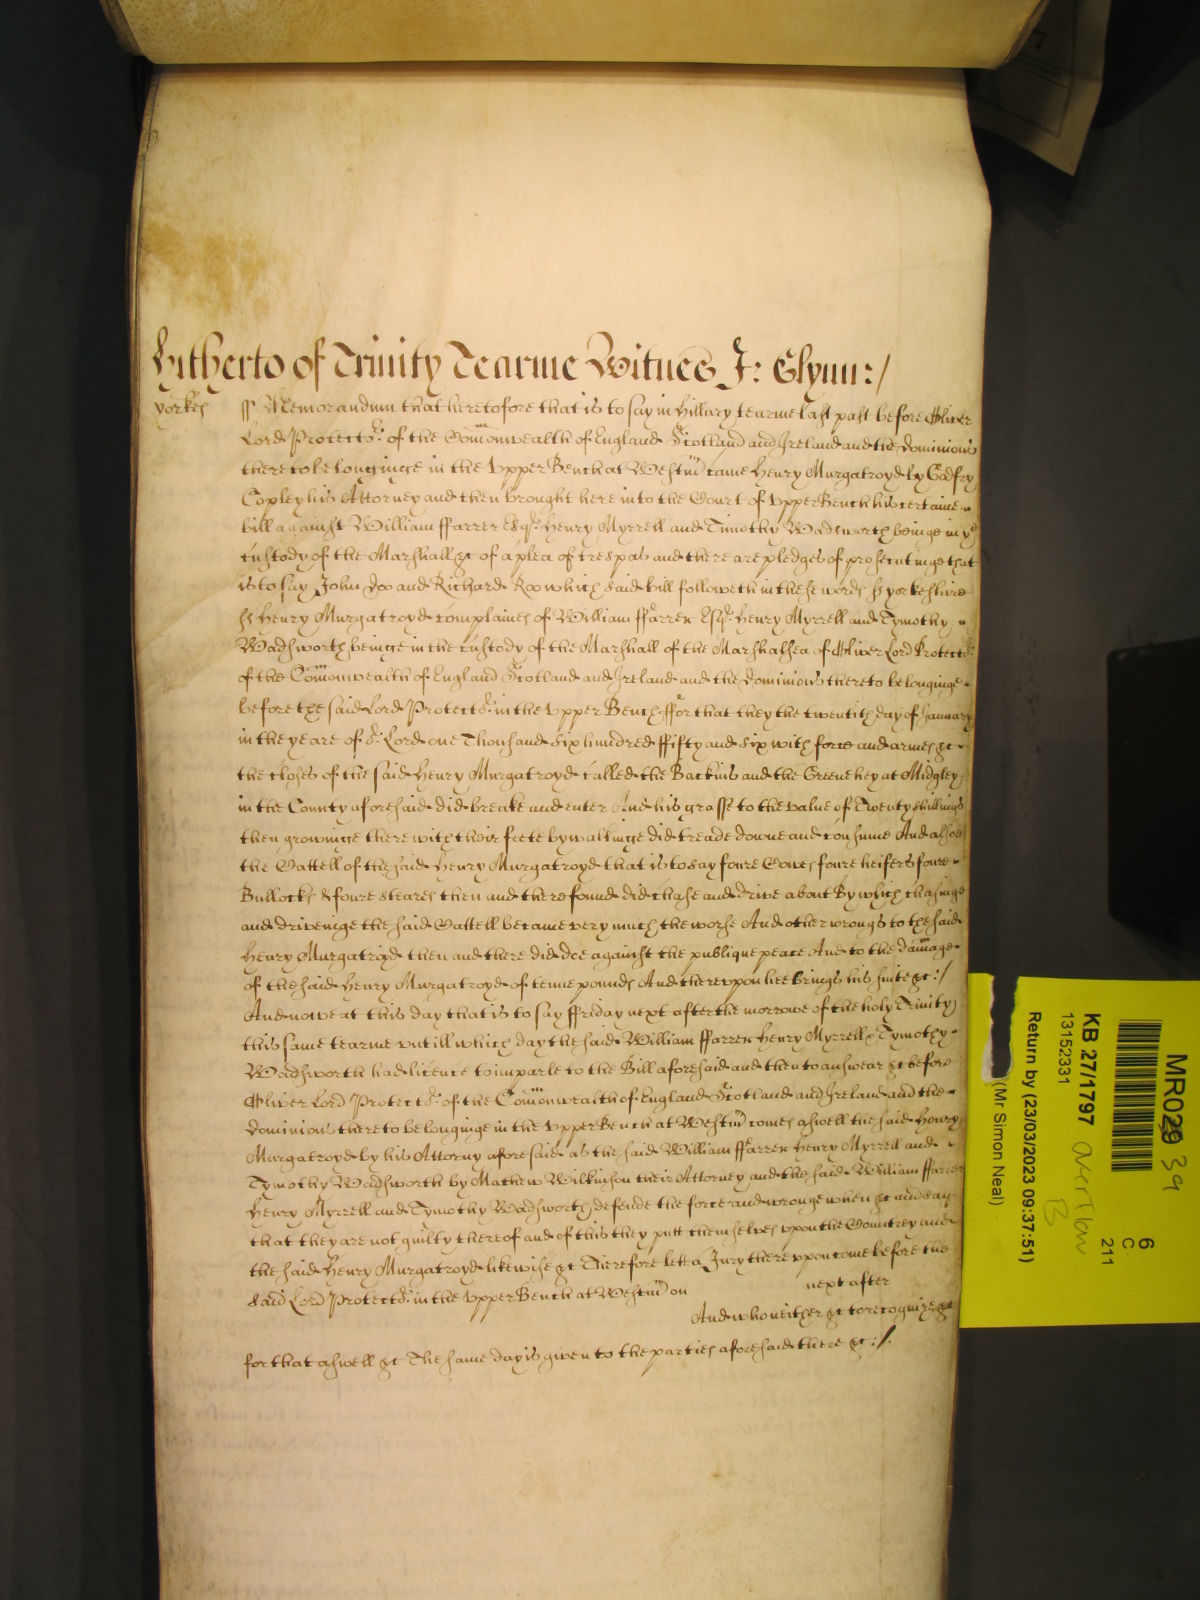 hitherto of Trinity Tearme Witnes J: Glynn:/
yorkes ss Memorandum that heretofore that is to say in Hillary tearme last past before Oliver
Lord Protector of the Comonwealth of England Scotland and Ireland and the dominions
thereto belonginge in the Upper Bench at Westm came Henry Murgatroyd by Godfry
Copley his Attorney and then brought here into the Court of Upper Bench his certaine
bill against William ffarrer Esqr Henry Myrrell and Timothy Wadsworth beinge in ye
custody of the Marshall &c of a plea of trespas and there are pledges of prosecutinge that
is to say John Doo and Richard Roo which said bill followeth in these words ss yorkeshire
ss Henry Murgatroyd complaines of William ffarrer Esqr Henry Myrrell and Tymothy
Wadsworth beinge in the custody of the Marshall of the Marshalsea of Oliver Lord Protector
of the Comonwealth of England Scotland and Ireland and the dominions thereto belonginge
before the said Lord Protector in the Upper Bench ffor that they the twentith day of January
in the yeare of or Lord one Thousand six hundred ffifty and six with force and armes &c
the closes of the said Henry Murgatroyd called the Backins and the Greene hey at Midgley
in the County aforesaid did breake and enter And his grasse to the value of Twenty shillings
then growinge there with their feete by walkinge did treade downe and consume And alsoe
the Cattell of the said Henry Murgatroyd that is to say foure Cowes foure heifers foure
Bullocks & foure steares then and there found did chase and drive about By which chasinge
and driveinge the said Cattell became very much the worse And other wrongs to the said
Henry Murgatroyd then and there did doe against the publique peace And to the damage
of the said Henry Murgatroyd of tenne pounds And thereupon hee brings his suite &c:/
And nowe at this day that is to say ffriday next after the morrowe of the holy Trinity
this same tearme untill which day the said William ffarrer Henry Myrrell & Tymothy
Wadsworth had licence to imparle to the Bill aforesaid and then to answear &c before
Oliver Lord Protector of the Comonwealth of England Scotland and Ireland and the
dominions thereto belonginge in the Upper Bench at Westm comes aswell the said Henry
Murgatroyd by his Attorny aforesaid as the said William ffarrer Henry Myrrell and
Tymothy Wadsworth by Mathew Wilkinson their Attorney and the said William ffarrer
Henry Myrrell and Tymothy Wadsworth defende the force and wronge when &c and say
that they are not guilty thereof and of this they putt themselves upon the Countrey and
the said Henry Murgatroyd likewise &c Therefore lett a Jury thereupon come before the
said Lord Protector in the Upper Bench at Westm on next after
And who neither &c to recognize &c
for that aswell &c The same day is given to the parties aforesaid there &c:/.
MR029 39
6
C
211
KB 27/1797 overflow
B
13152331
Return by (23/03/2023 09:37:51)
(Mr Simon Neal)